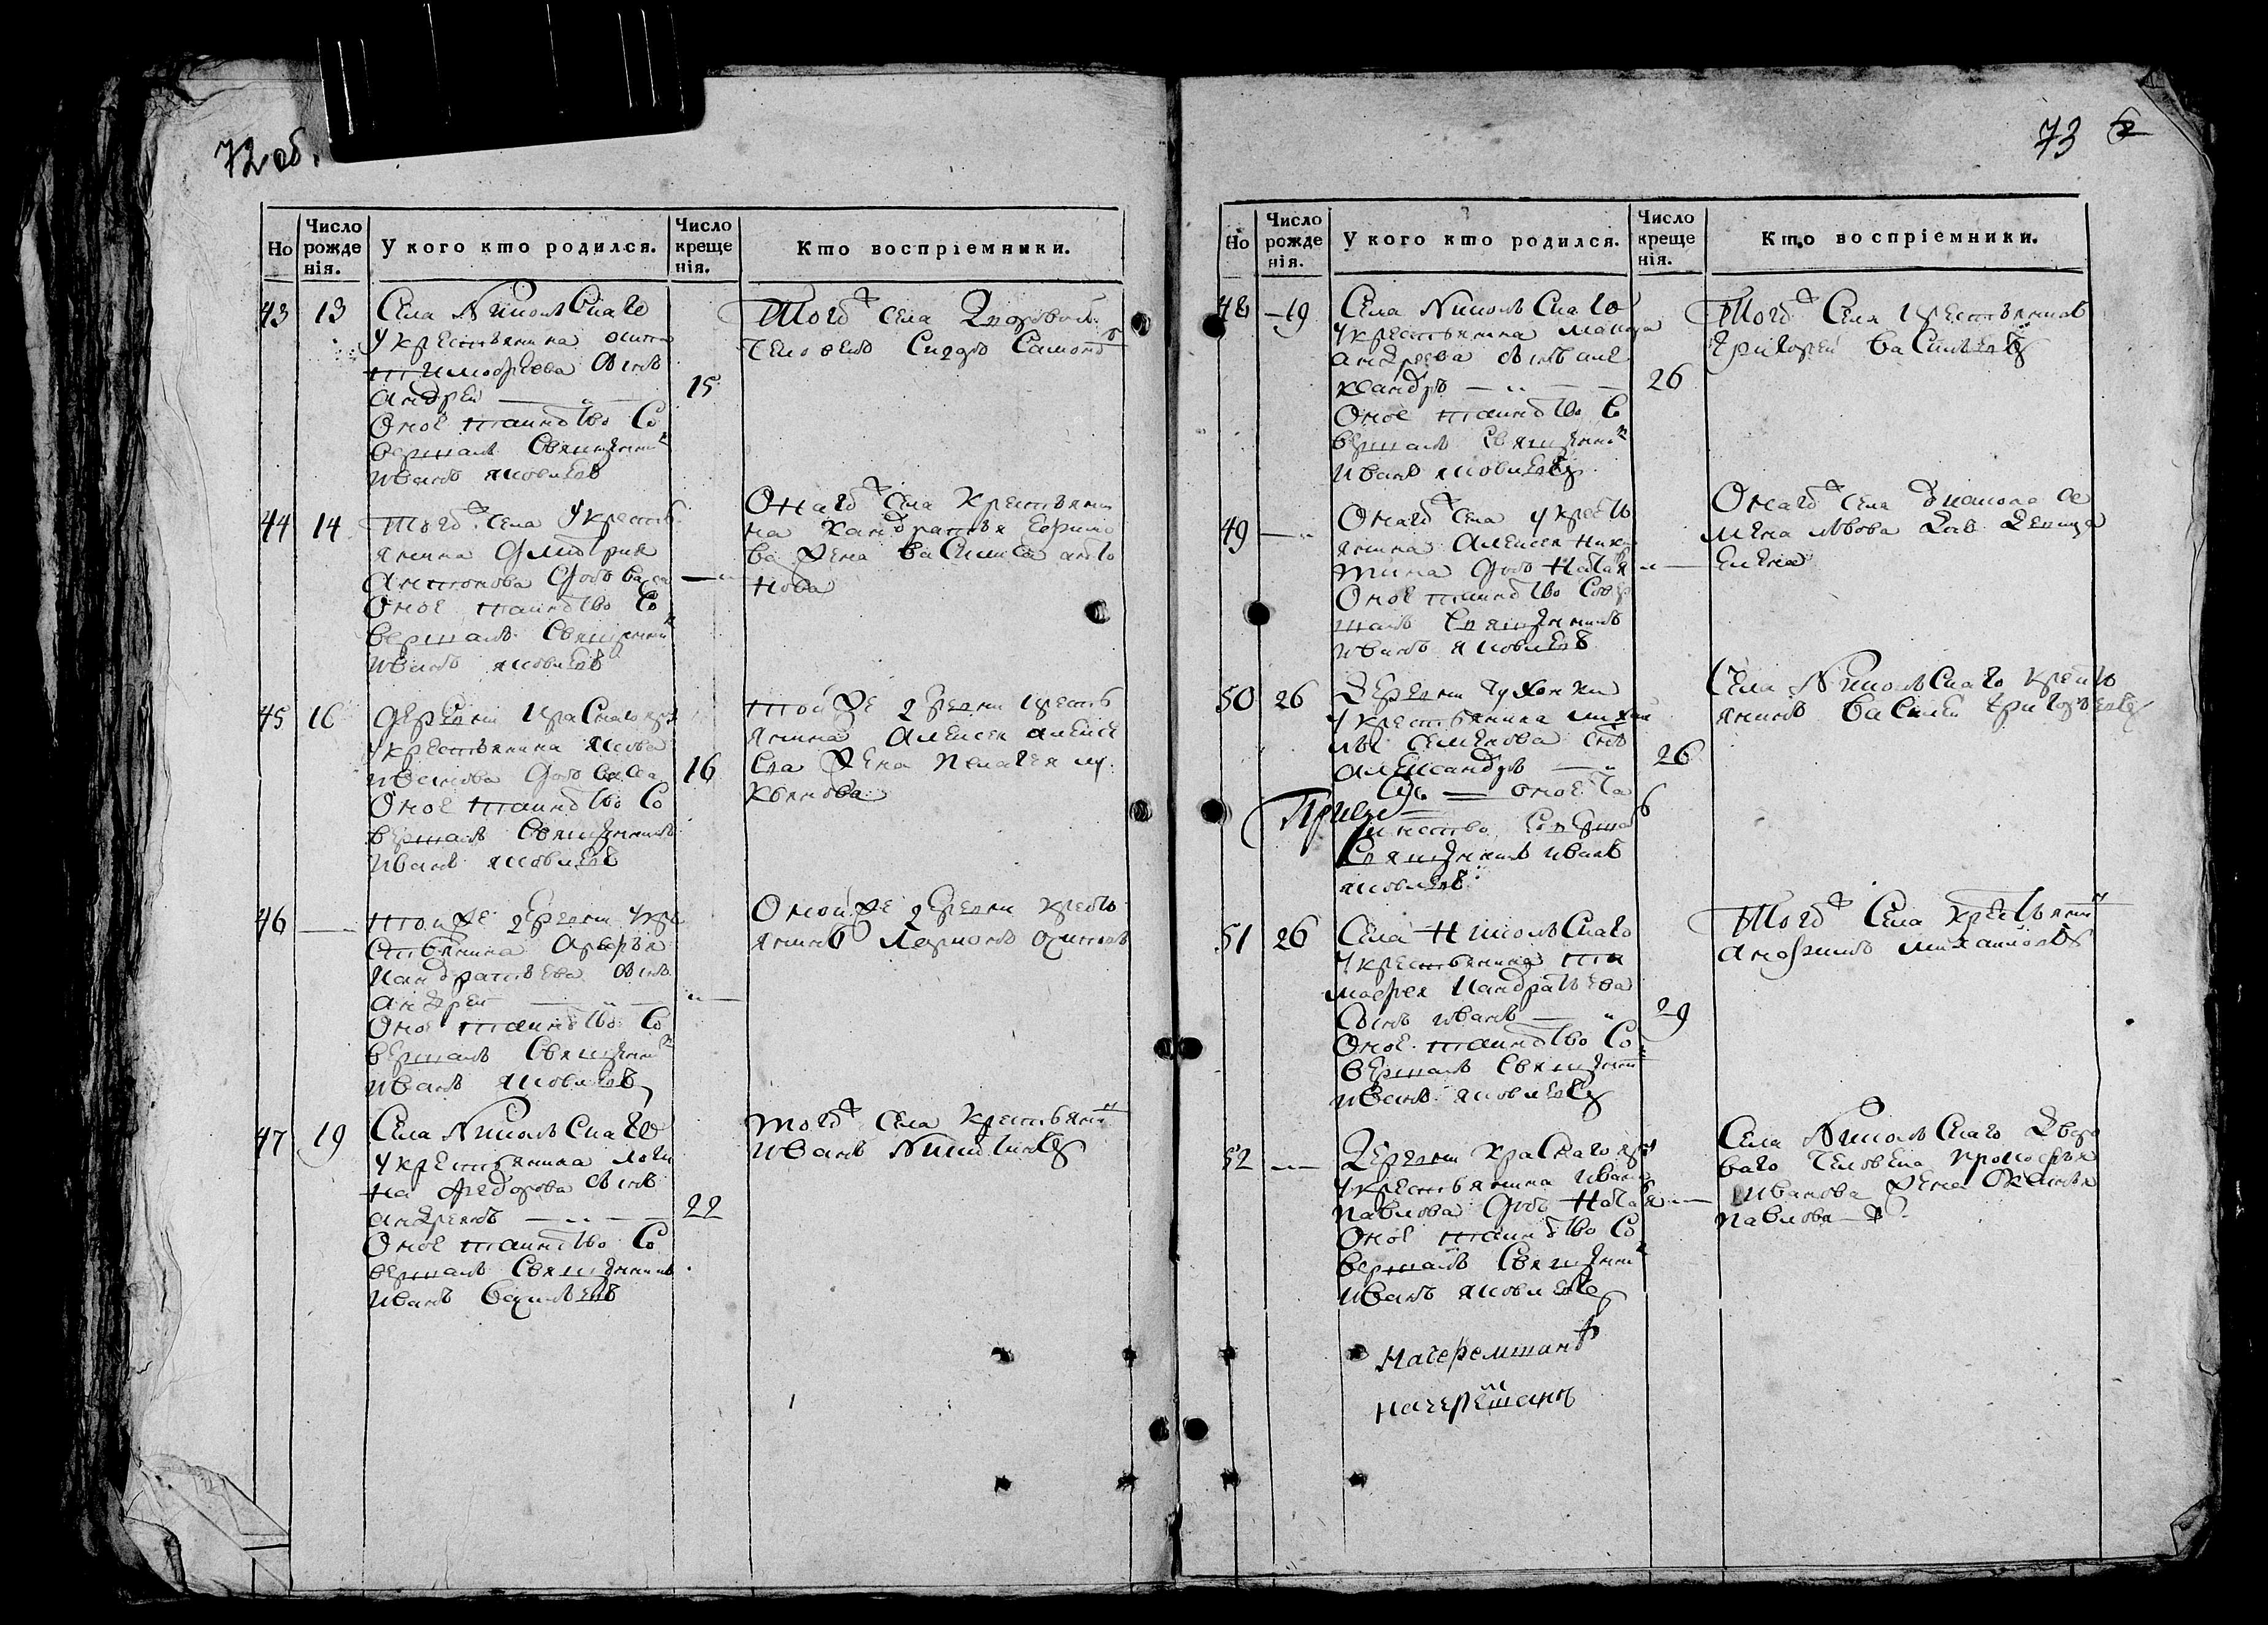 72 об.
Но
Число рожденія.
У кого кто родился.
Число крещенія.
Кто воспріемники.
43 13 Села Никольскаго
у крестьянина осипа
тимофеева сынъ
андрей 15
Оное таинство со
вершалъ священникъ
иванъ яковлевъ
Тогожъ села дворовой
человекъ Сидоръ
44 14 Тогожъ села у кресть
янина дмитрия
антонова дочь
Оное таинство со
вершалъ священникъ
иванъ яковлевъ
Онагожъ села крестьяни
на кандратья ефимо
ва жена василиса анто
нова
45 16 деревни краснаго
у крестьянина якова
иванова дочь 16
Оное таинство со
вершалъ священникъ
иванъ яковлевъ
той же деревни кресть
янина алексея алексе
ева жена пелагея лу
кьянова
46 той же деревни у кре
стьянина
кандратьева сынъ
андрей
Оное таинство со
вершалъ священникъ
иванъ яковлевъ
Оной же деревни кресть
янинъ
47 19 Села Никольскаго
у крестьянина логи
на федорова сынъ
андреянъ 22
Оное таинство со
вершалъ священникъ
иванъ
тогожъ села крестьянинъ
иванъ никитинъ
73
Но
Число рожденія.
У кого кто родился.
Число крещенія.
Кто воспріемники.
48 19 Села Никольскаго
у крестьянина
андреева сынъ але
ксандръ 26
Оное таинство со
вершалъ священникъ
иванъ яковлевъ
Тогожъ села крестьянинъ
григорей васильевъ
49 Онагожъ села у кресть
янина алексея ники
тина дочь наталья
Оное таинство совер
шалъ священникъ
иванъ яковлевъ
Онагожъ села дьякона се
мена львова дочь девица
елена
50 26 деревни
у крестьянина михай
лы семенова сынъ
александръ 26
оное та
инство совершалъ
священникъ иванъ
яковлевъ
Села Никольскаго кресть
янинъ василей григорьевъ
51 26 Села Никольскаго
у крестьянина ти
мофея кандратьева
сынъ иванъ 29
Оное таинство со
вершалъ священникъ
иванъ яковлевъ
Тогожъ села крестьянинъ
михайловъ
52 деревни краснаго
у крестьянина ивана
павлова дочь наталья
Оное таинство со
вершалъ священникъ
иванъ яковлевъ
Села Никольскаго дворо
ваго человека прокофья
иванова жена
павлова